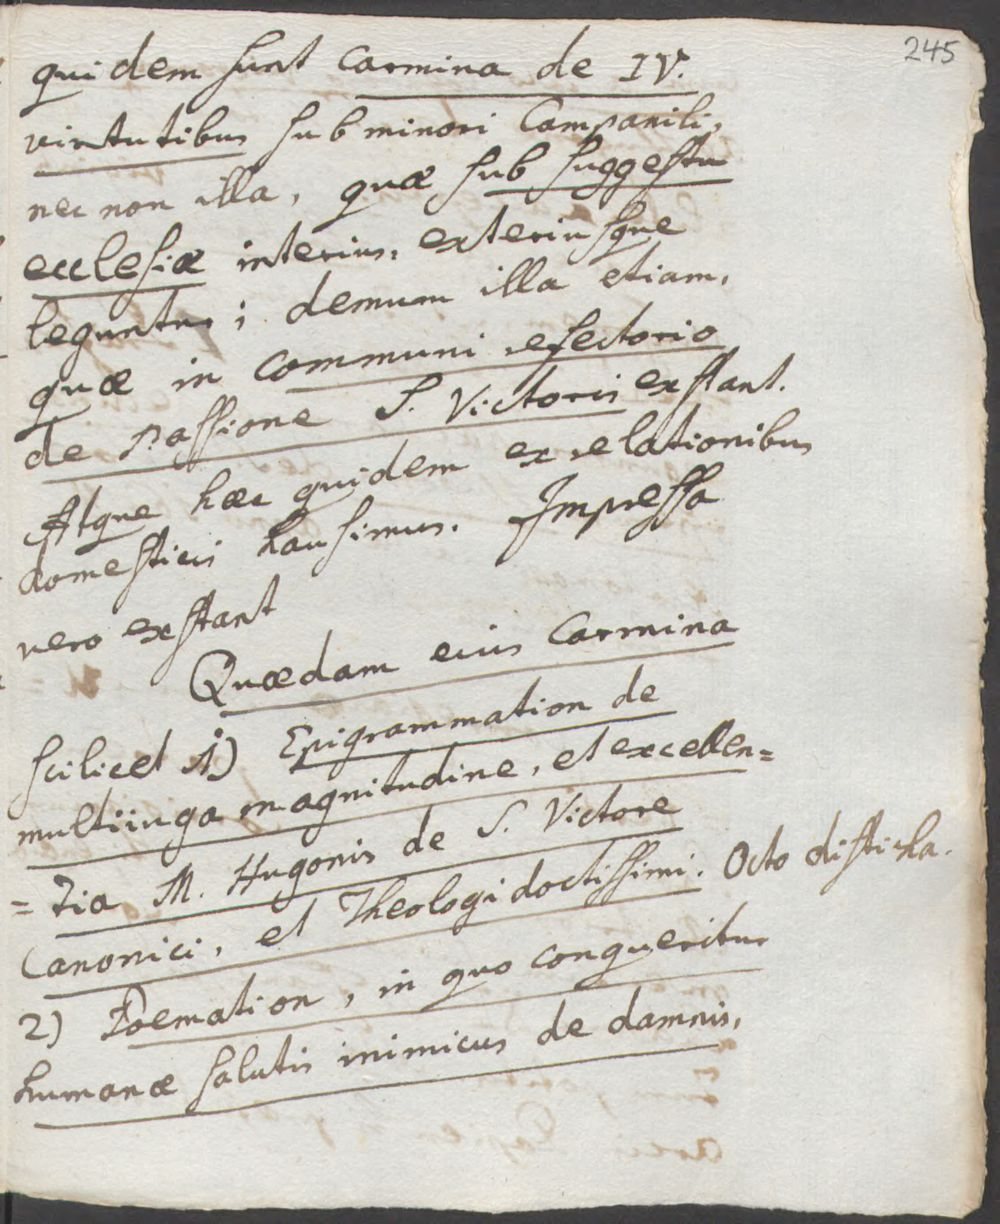 245
quidem sunt Carmina de IV.
virtutibus sub minori Campanili,
nec non illa, quæ sub suggestu
ecclesiæ interius, exteriusque
leguntur; demum illa etiam,
quæ in communi refectorio
de Passione S. Victoris exstant.
Atque hæc quidem ex relationibus
domesticis hausimus. Impressa
vero exstant
Quædam eius Carmina
scilicet 1) Epigrammation de
multiiuga magnitudine, et excellen=
=tia M. Hugonis de S. Victore
Canonici, et Theologi doctissimi. Octo disticha.
2) Poemation, in quo conqueritur
humanæ salutis inimicus de damnis,